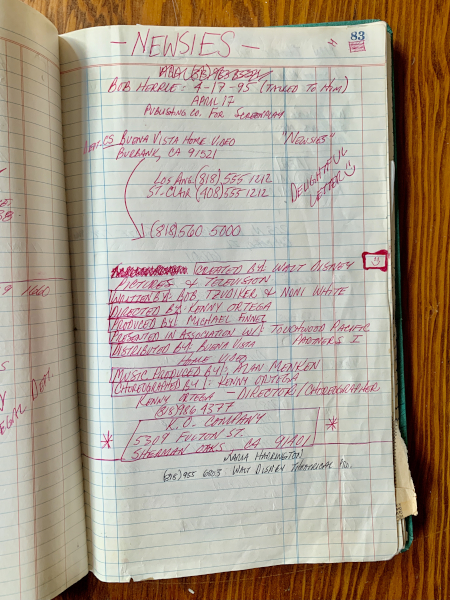 83
- NEWSIES -
BOB HERRLE: 4-17-95 (TALKED TO HIM)
APRIL 17
PUBLISHING CO. FOR SCREENPLAY
BUENA VISTA HOME VIDEO
BURBANK, CA 91521
"NEWSIES"
DELIGHTFUL
LETTER
LOS ANG (818) 555 1212
ST. CLAIR (408) 555 1212
(818) 560 5000
CREATED BY: WALT DISNEY
PICTURES & TELEVISION
WRITTEN BY: BOB TZUDIKER & NONI WHITE
DIRECTED BY: KENNY ORTEGA
PRODUCED BY: MICHAEL FINNEL
PRESENTED IN ASSOCIATION W/: TOUCHWOOD PACIFIC
PARTNERS I
DISTRIBUTED BY: BUENA VISTA
HOME VIDEO
MUSIC PRODUCED BY: ALAN MENKEN
CHOREOGRAPHED BY: KENNY ORTEGA
KENNY ORTEGA - DIRECTOR/CHOREOGRAPHER
(818) 986 4377
K.O. COMPANY
* 5309 FULTON ST. *
SHERMAN OAKS, CA 91401
MARIA HARRINGTON
(818) 955 6803 WALT DISNEY THEATRICAL
9 1660
EGAL DEPT.